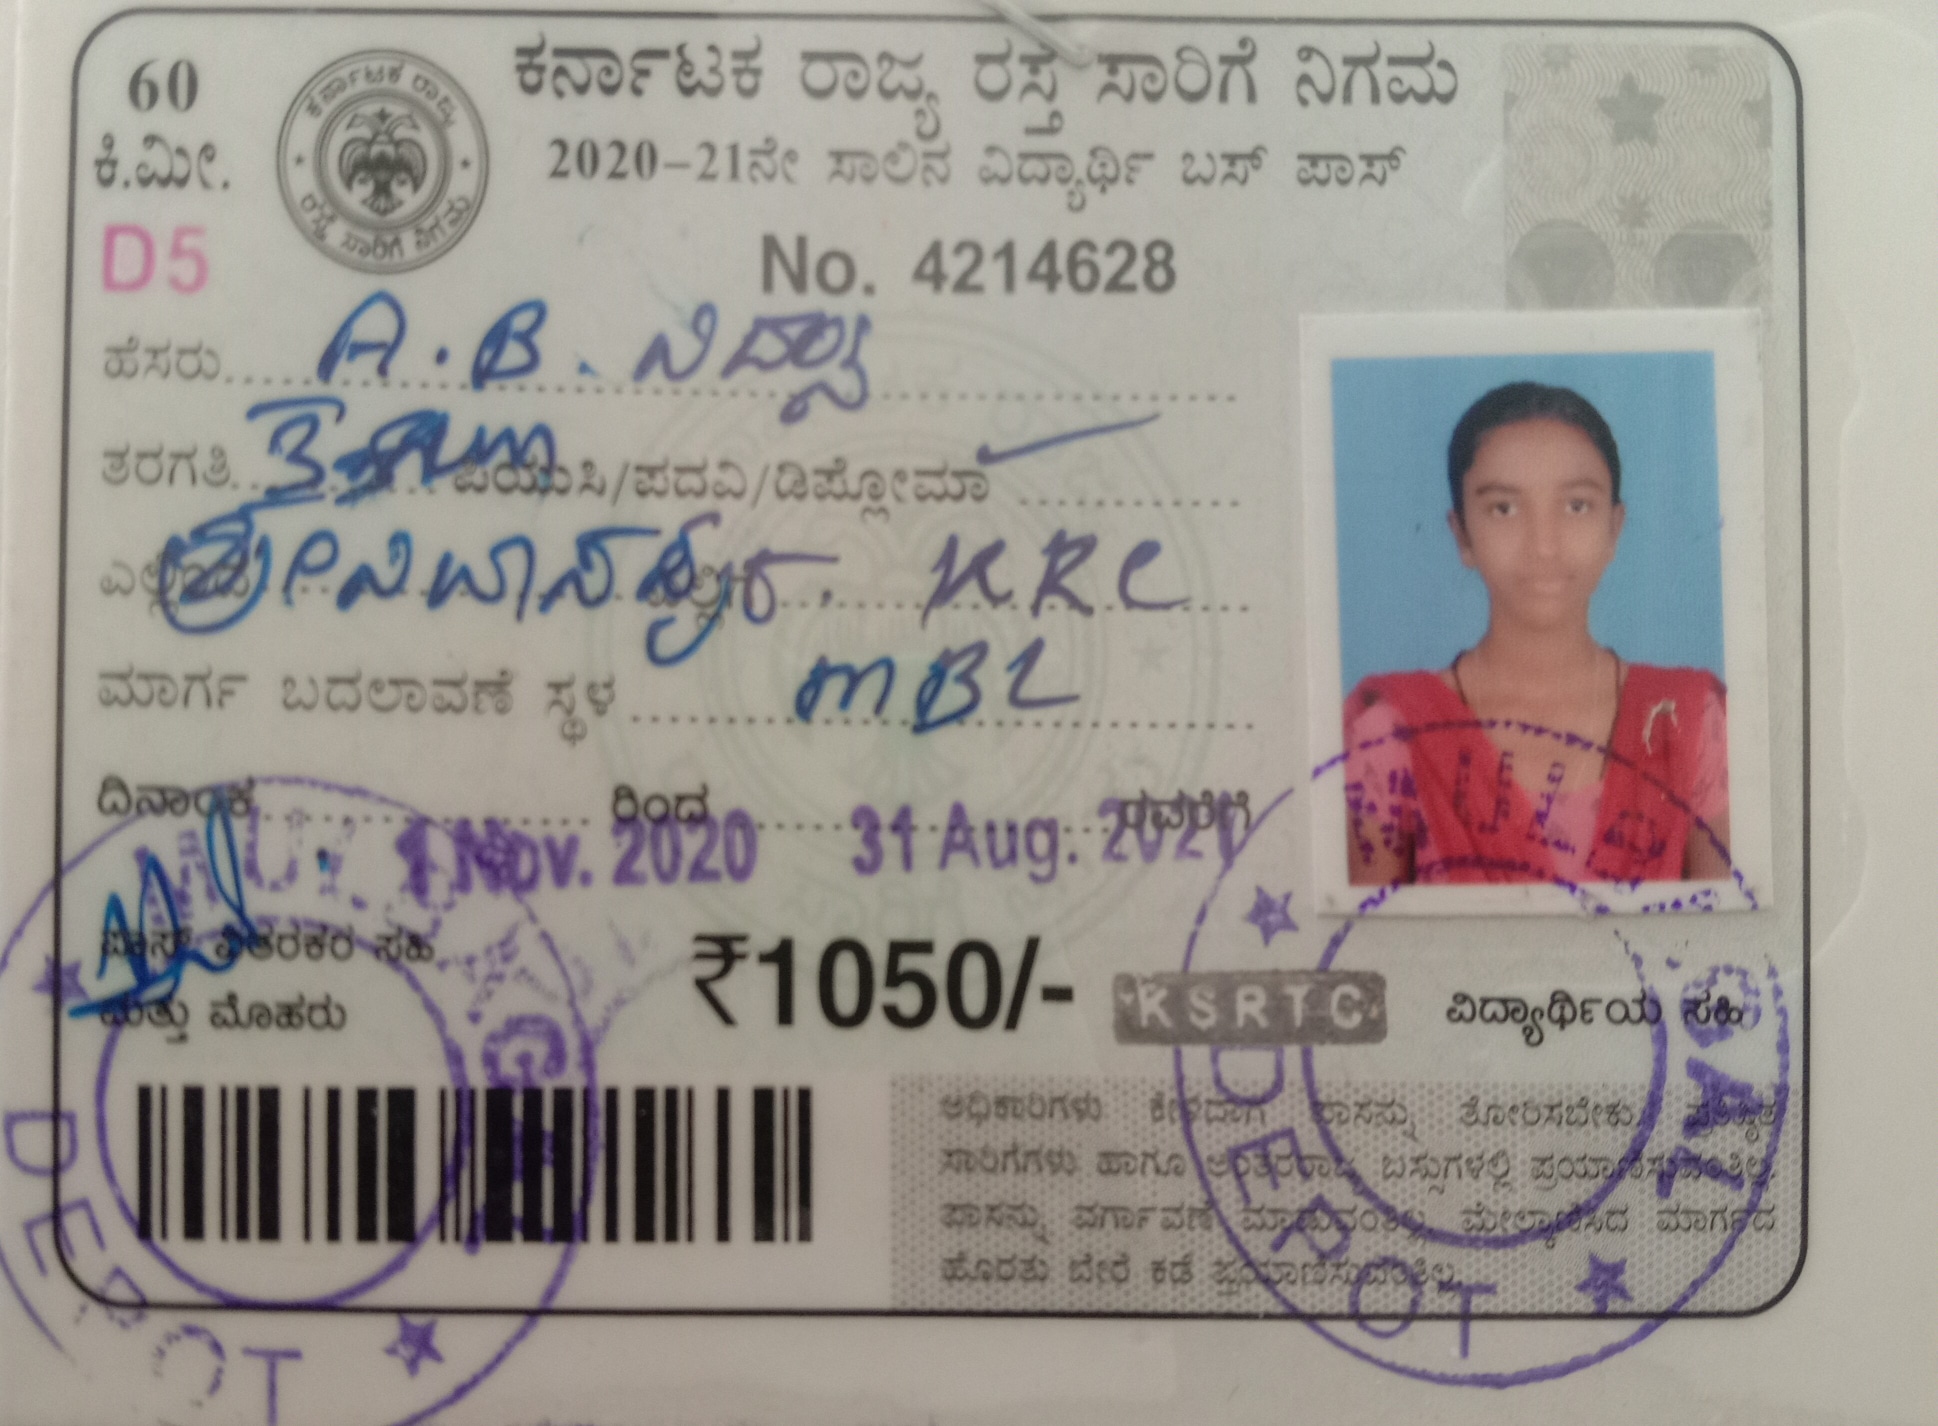 60
ಕಿ.ಮೀ.
D5
ಕರ್ನಾಟಕ ರಾಜ್ಯ
ರಸ್ತೆ ಸಾರಿಗೆ ನಿಗಮ
ಕರ್ನಾಟಕ ರಾಜ್ಯ ರಸ್ತೆ ಸಾರಿಗೆ ನಿಗಮ
2020-21ನೇ ಸಾಲಿನ ವಿದ್ಯಾರ್ಥಿ ಬಸ್ ಪಾಸ್
No. 4214628
ಹೆಸರು A.B.
ತರಗತಿ ಪಿಯುಸಿ/ಪದವಿ/ಡಿಪ್ಲೋಮಾ
KRC
ಮಾರ್ಗ ಬದಲಾವಣೆ ಸ್ಥಳ MBL
ದಿನಾಂಕ ರಿಂದ ರವರೆಗೆ
1 Nov. 2020 31 Aug. 2021
ಪಾಸ್ ವಿತರಕರ ಸಹಿ
ಮತ್ತು ಮೊಹರು
₹1050/-
KSRTC
ವಿದ್ಯಾರ್ಥಿಯ ಸಹಿ
ಅಧಿಕಾರಿಗಳು ಕೇಳಿದಾಗ ಪಾಸನ್ನು ತೋರಿಸಬೇಕು.
ಸಾರಿಗೆಗಳು ಹಾಗೂ ಅಂತರರಾಜ್ಯ ಬಸ್ಸುಗಳಲ್ಲಿ ಪ್ರಯಾಣಿಸುವಂತಿಲ್ಲ.
ಪಾಸನ್ನು ವರ್ಗಾವಣೆ ಮಾಡುವಂತಿಲ್ಲ. ಮೇಲ್ಕಾಣಿಸಿದ ಮಾರ್ಗದ
ಹೊರತು ಬೇರೆ ಕಡೆ ಪ್ರಯಾಣಿಸುವಂತಿಲ್ಲ.
DEPOT
DEPOT